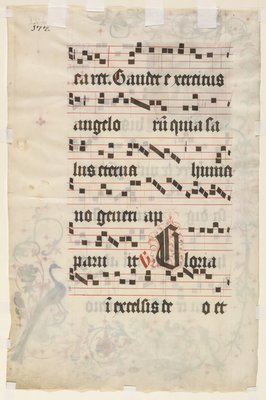 377.
ca ret. Gaudet exercitus
angelo rū quia sa
lus eterna huma
no generi ap
paru it Gloria
ī excelsis de o et